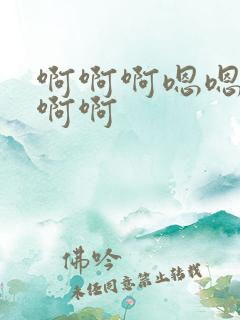 啊啊啊嗯嗯
啊啊
佛吟
未经同意禁止转载